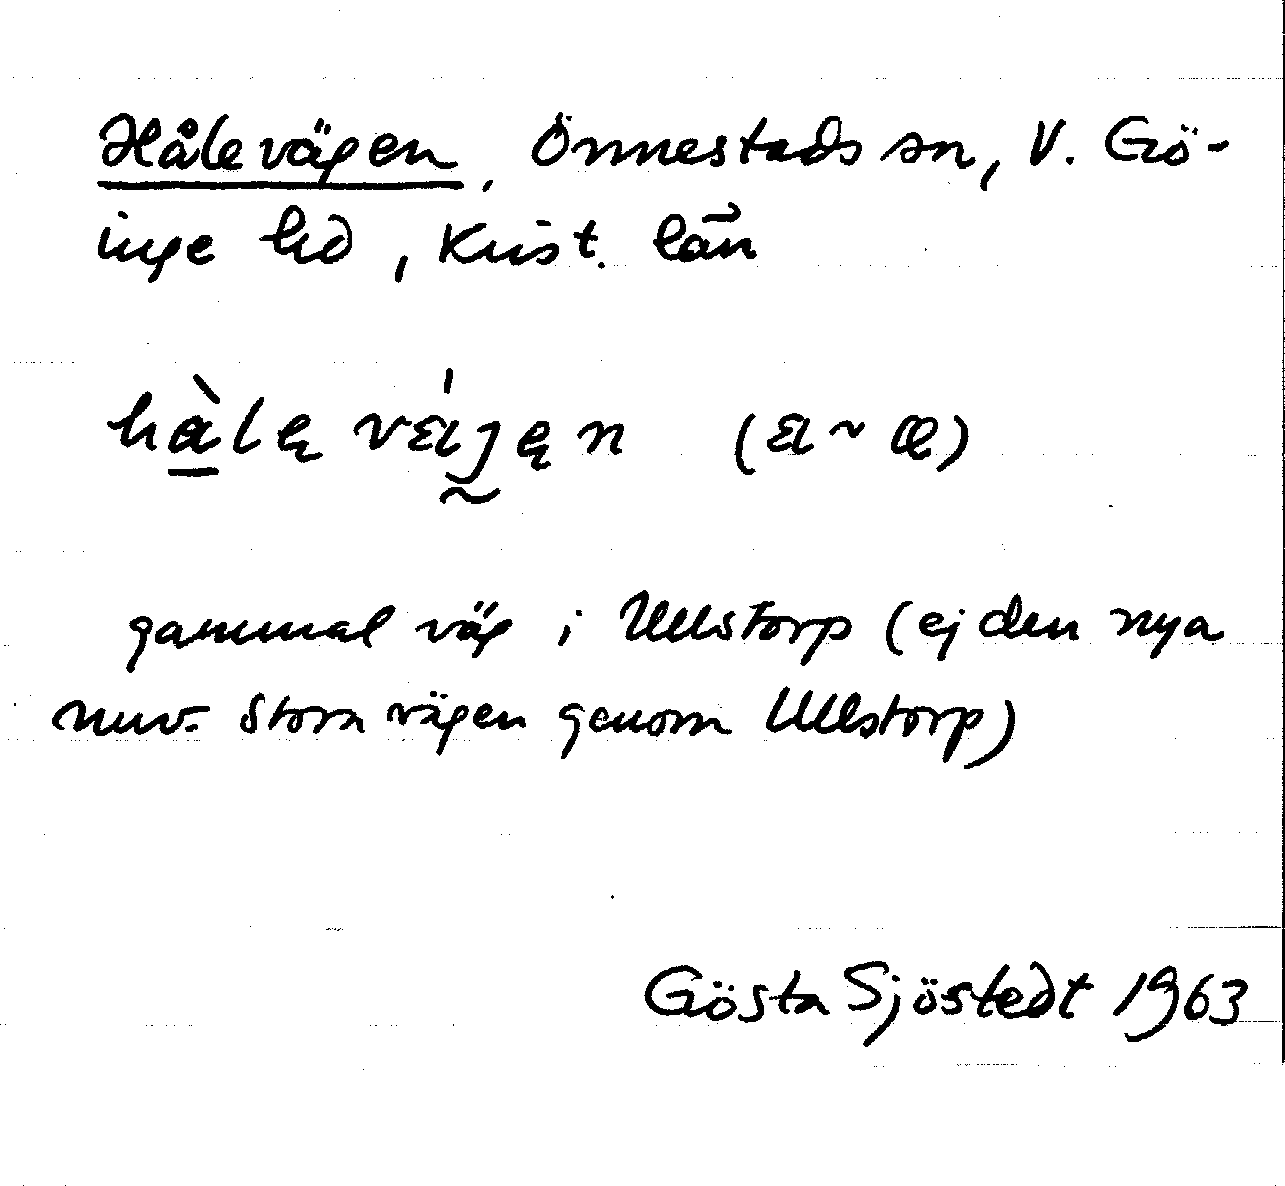 Hålevägen, Önnestads sn, V. Gö-
inge hd, Krist. län
hàlę vä́jęn (ä ~ æ)
gammal väg i Ullstorp (ej den nya
nuv. stora vägen genom Ullstorp)
Gösta Sjöstedt 1963